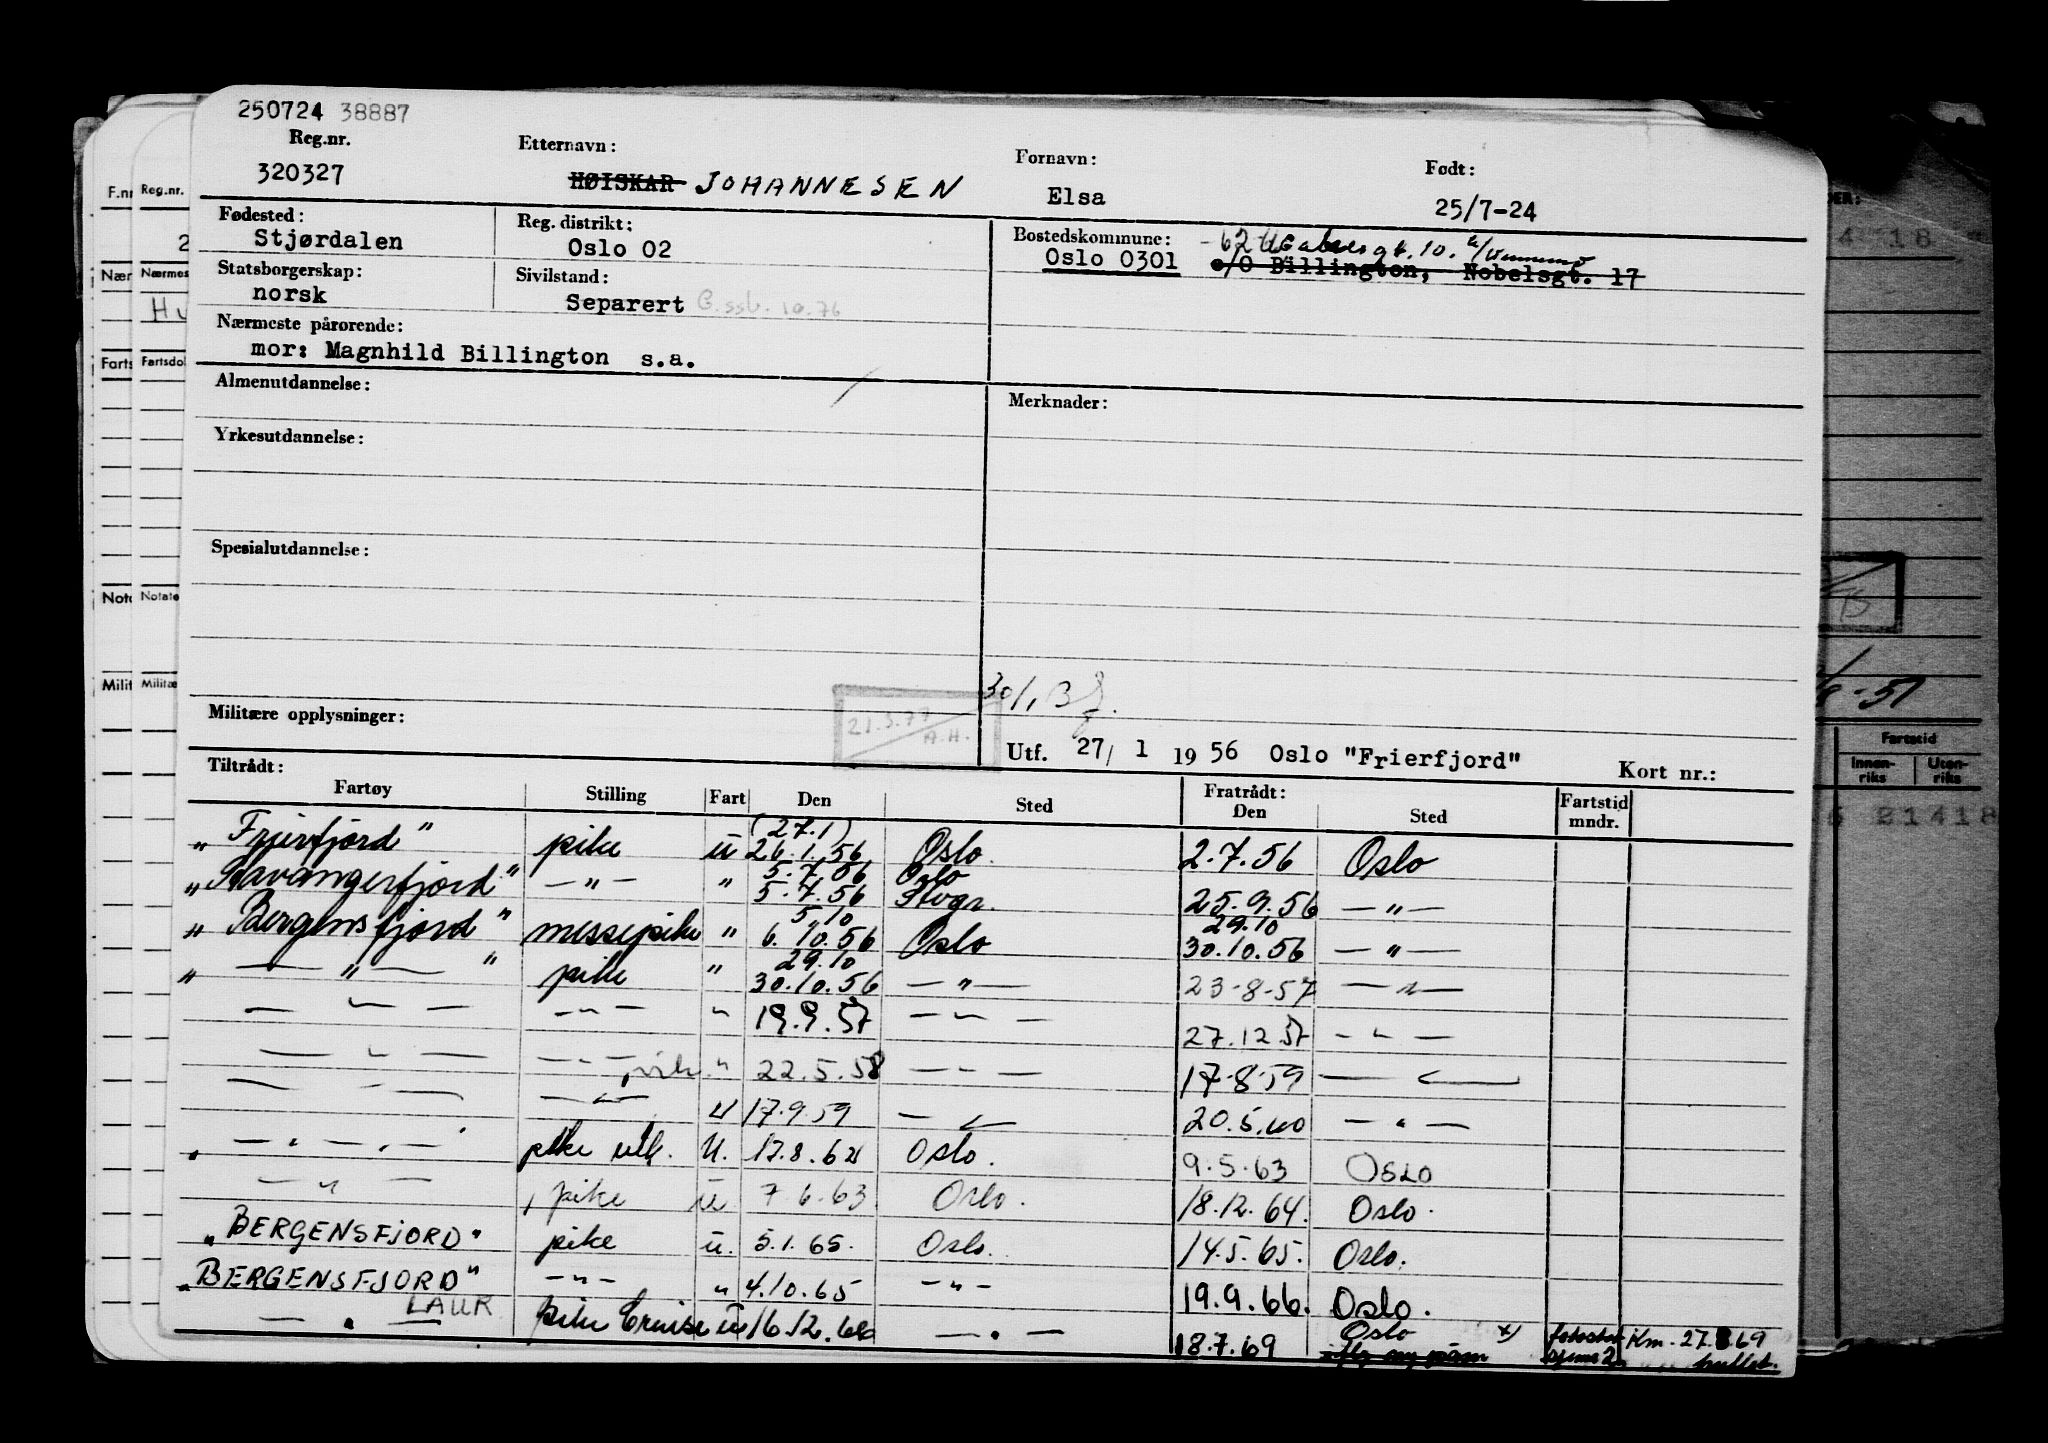 250724 38887
Reg.nr.
320327
Etternavn:
HØISKAR JOHANNESEN
Fornavn:
Elsa
Født:
25/7-24
Fødested:
Stjørdalen
Reg. distrikt:
Oslo 02
Bostedskommune:
Oslo 0301
c/o Billington, Nobelsgt. 17
Statsborgerskap:
norsk
Sivilstand:
Separert
Nærmeste pårørende:
mor: Magnhild Billington s.a.
Almenutdannelse:
Merknader:
Yrkesutdannelse:
Spesialutdannelse:
Militære opplysninger:
21.3.77
A.H.
Utf. 27/ 1 19 56 Oslo "Frierfjord" Kort nr.:
Tiltrådt:
Fartøy Stilling Fart Den Sted Fratrådt: Den Sted Fartstid mndr.
(27.1)
"Frierfjord" pike u 26.1.56 Oslo. 2.7.56 Oslo
5.7.56 Oslo
"Stavangerfjord" —"— " 5.7.56 Stvgr. 25.9.56 —"—
5.10 29.10
"Bergensfjord" messepike " 6.10.56 Oslo 30.10.56 —"—
29.10
" — " — " pike " 30.10.56 —"— 23-8-57 —"—
— " — —"— " 19.9.57 —"— 27.12.57 —"—
— " — —"— " 22.5.58 —"— 17-8-59 —"—
— " — —"— u 17.9.59 —"— 20.5.60 —"—
" — " — " — pike utk. U. 17.8.62 Oslo. 9.5.63 OSLO
— " — pike u 7.6.63 Oslo. 18.12.64. Oslo.
"BERGENSFJORD" pike u. 5.1.65. Oslo. 14.5.65. Oslo.
"BERGENSFJORD" —"— " 4.10.65 —"— 19.9.66. Oslo.
LAUR
— " — pike Cruise u 16.12.66 —"— 18.7.69 Oslo x)
F.nr
Reg.nr.
Nær
Nærmes
Farts
Fartsdol
Notc
Notate
Milit
Militæ
Fartstid
Innen-riks
Uten-riks
21418